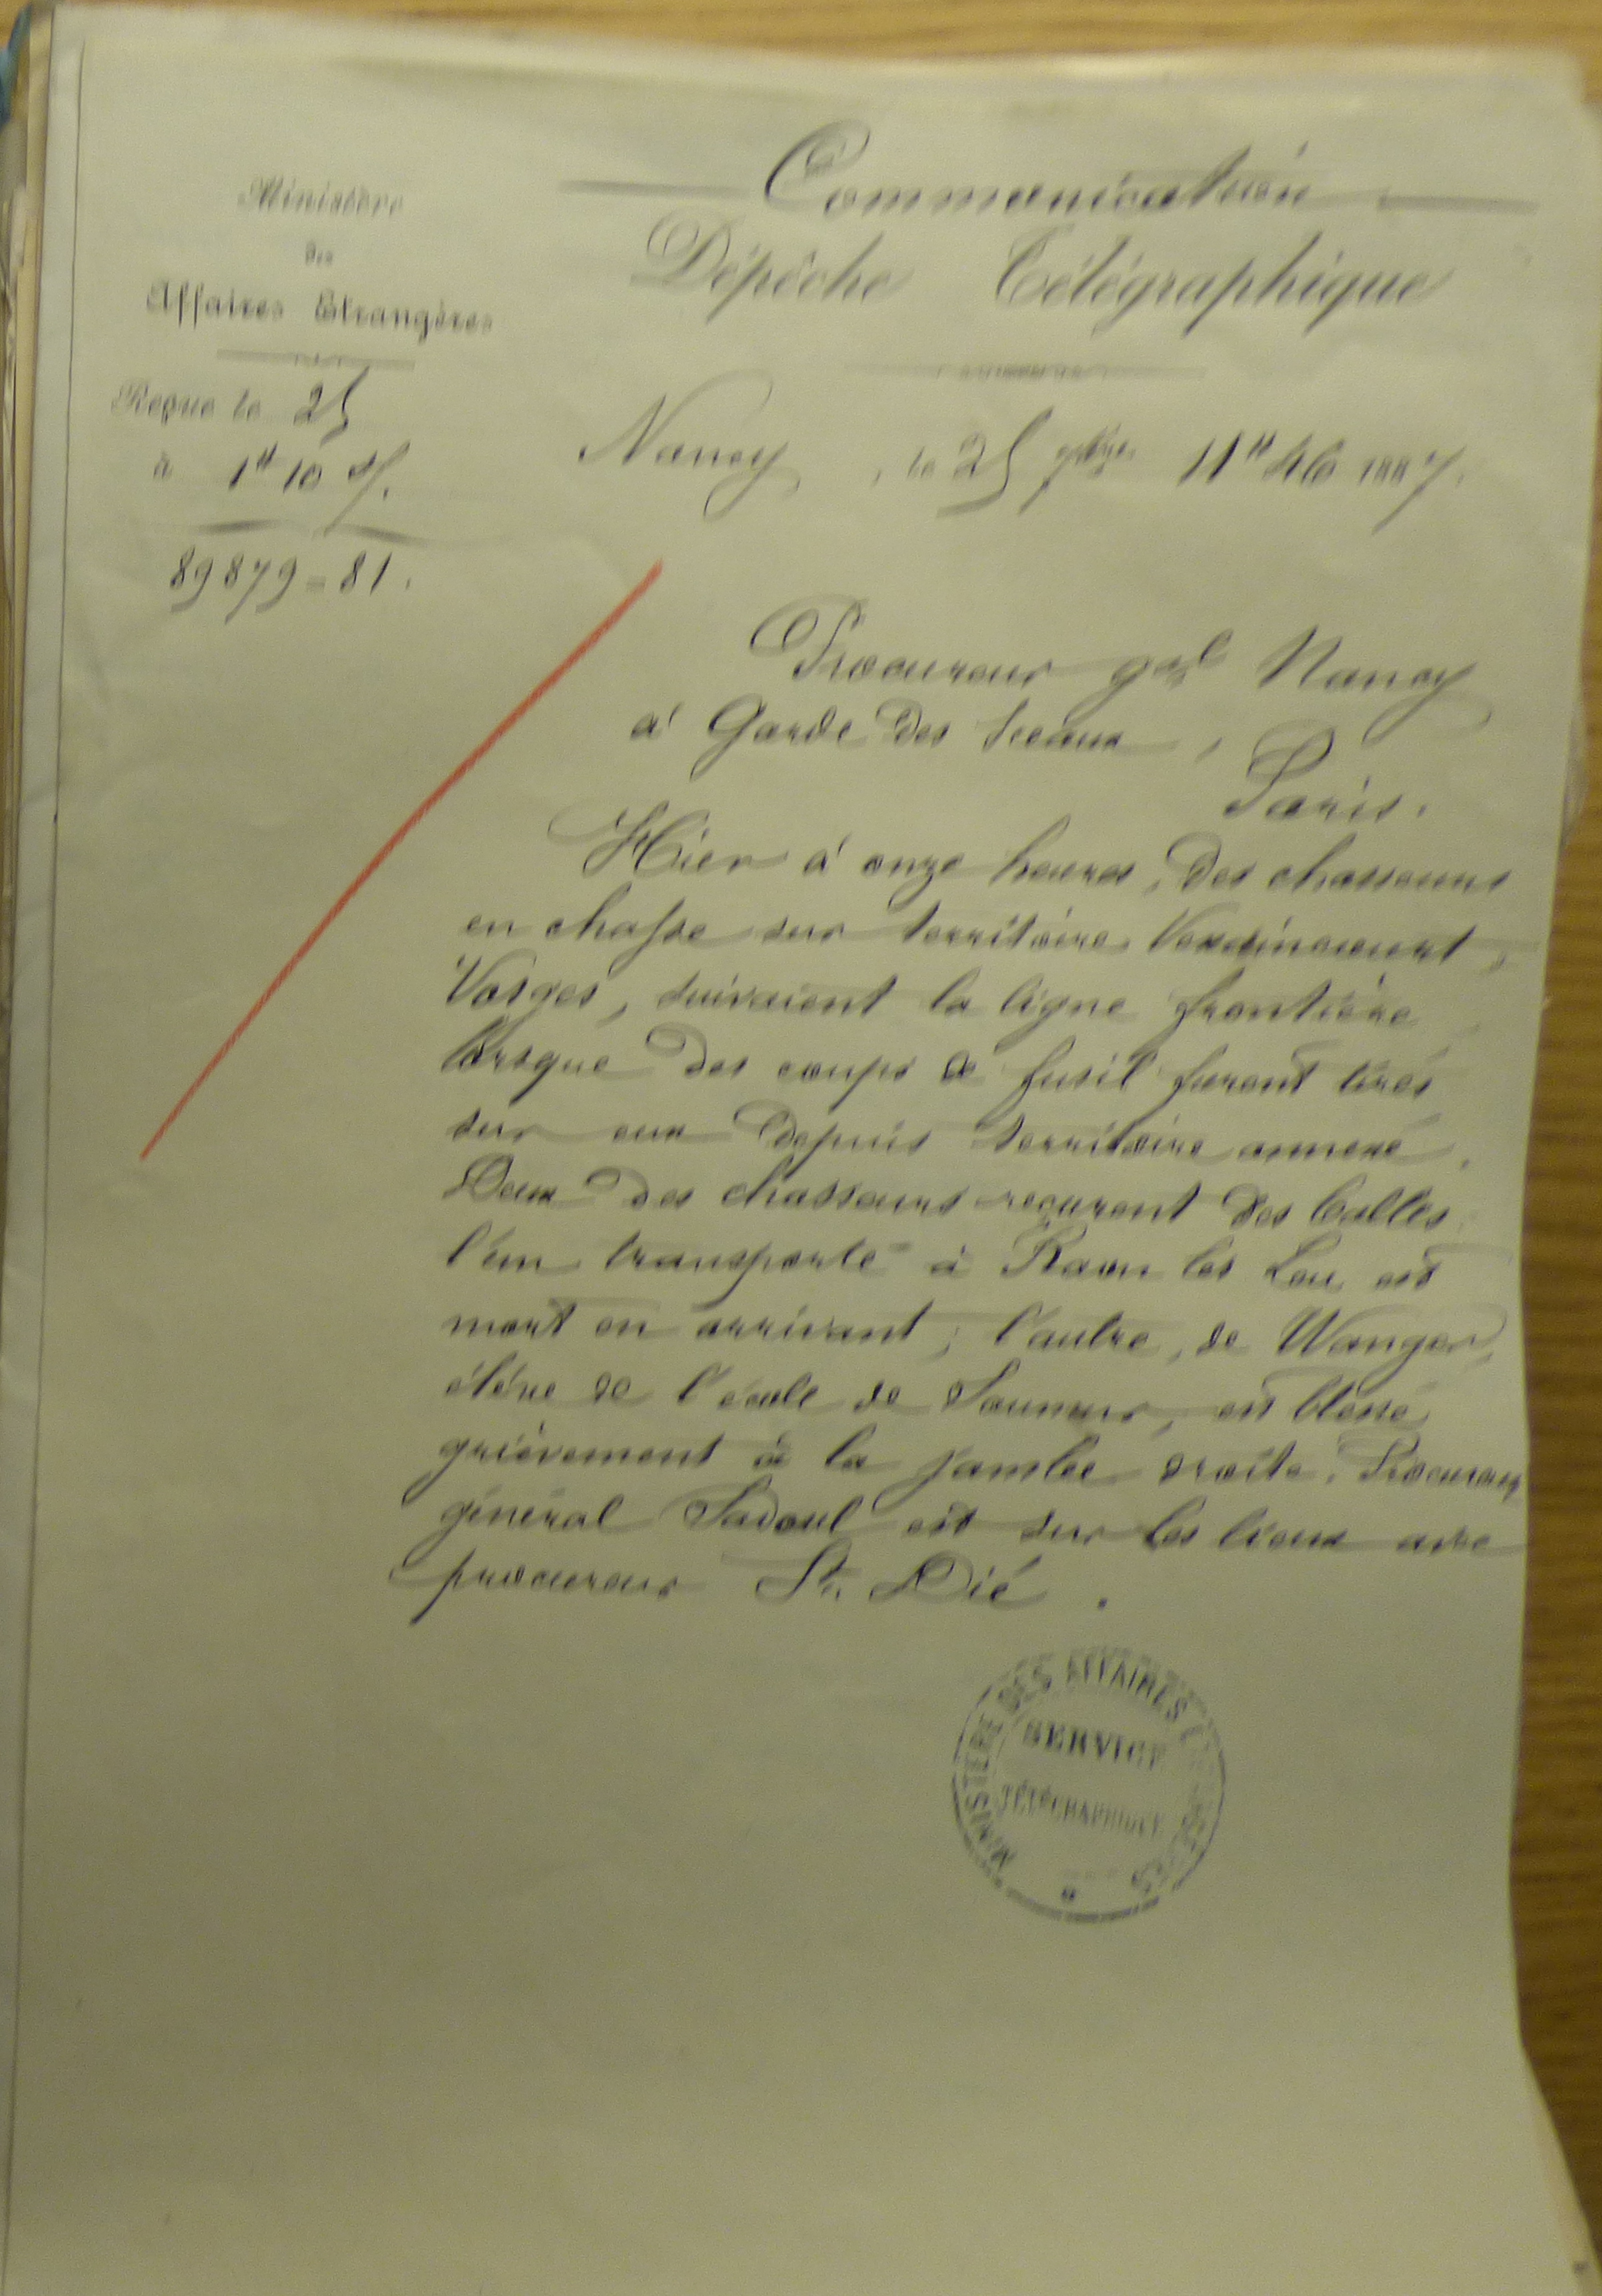 Communication
Dépêche Télégraphique
Ministère
des
Affaires Etrangères
Reçue le 25
à 1h 10 s/.
89879=81.
Nancy, le 25 7bre 11h 46 1887.
Procureur gal Nancy
à Garde des Sceaux,
Paris.
Hier à onze heures, des chasseurs
en chasse sur territoire Vexaincourt,
Vosges, suivaient la ligne frontière
lorsque des coups de fusil furent tirés
sur eux depuis territoire annexé.
Deux des chasseurs reçurent des balles
l'un transporté à Raon les Leau est
mort en arrivant, l'autre, de Wanger,
élève de l'école de Saumur, est blessé
grièvement à la jambe droite. Procureur
général Sadoul est sur les lieux avec
procureur St. Dié.
MINISTÈRE DES AFFAIRES ETRANGÈRES
SERVICE
TÉLÉGRAPHIQUE